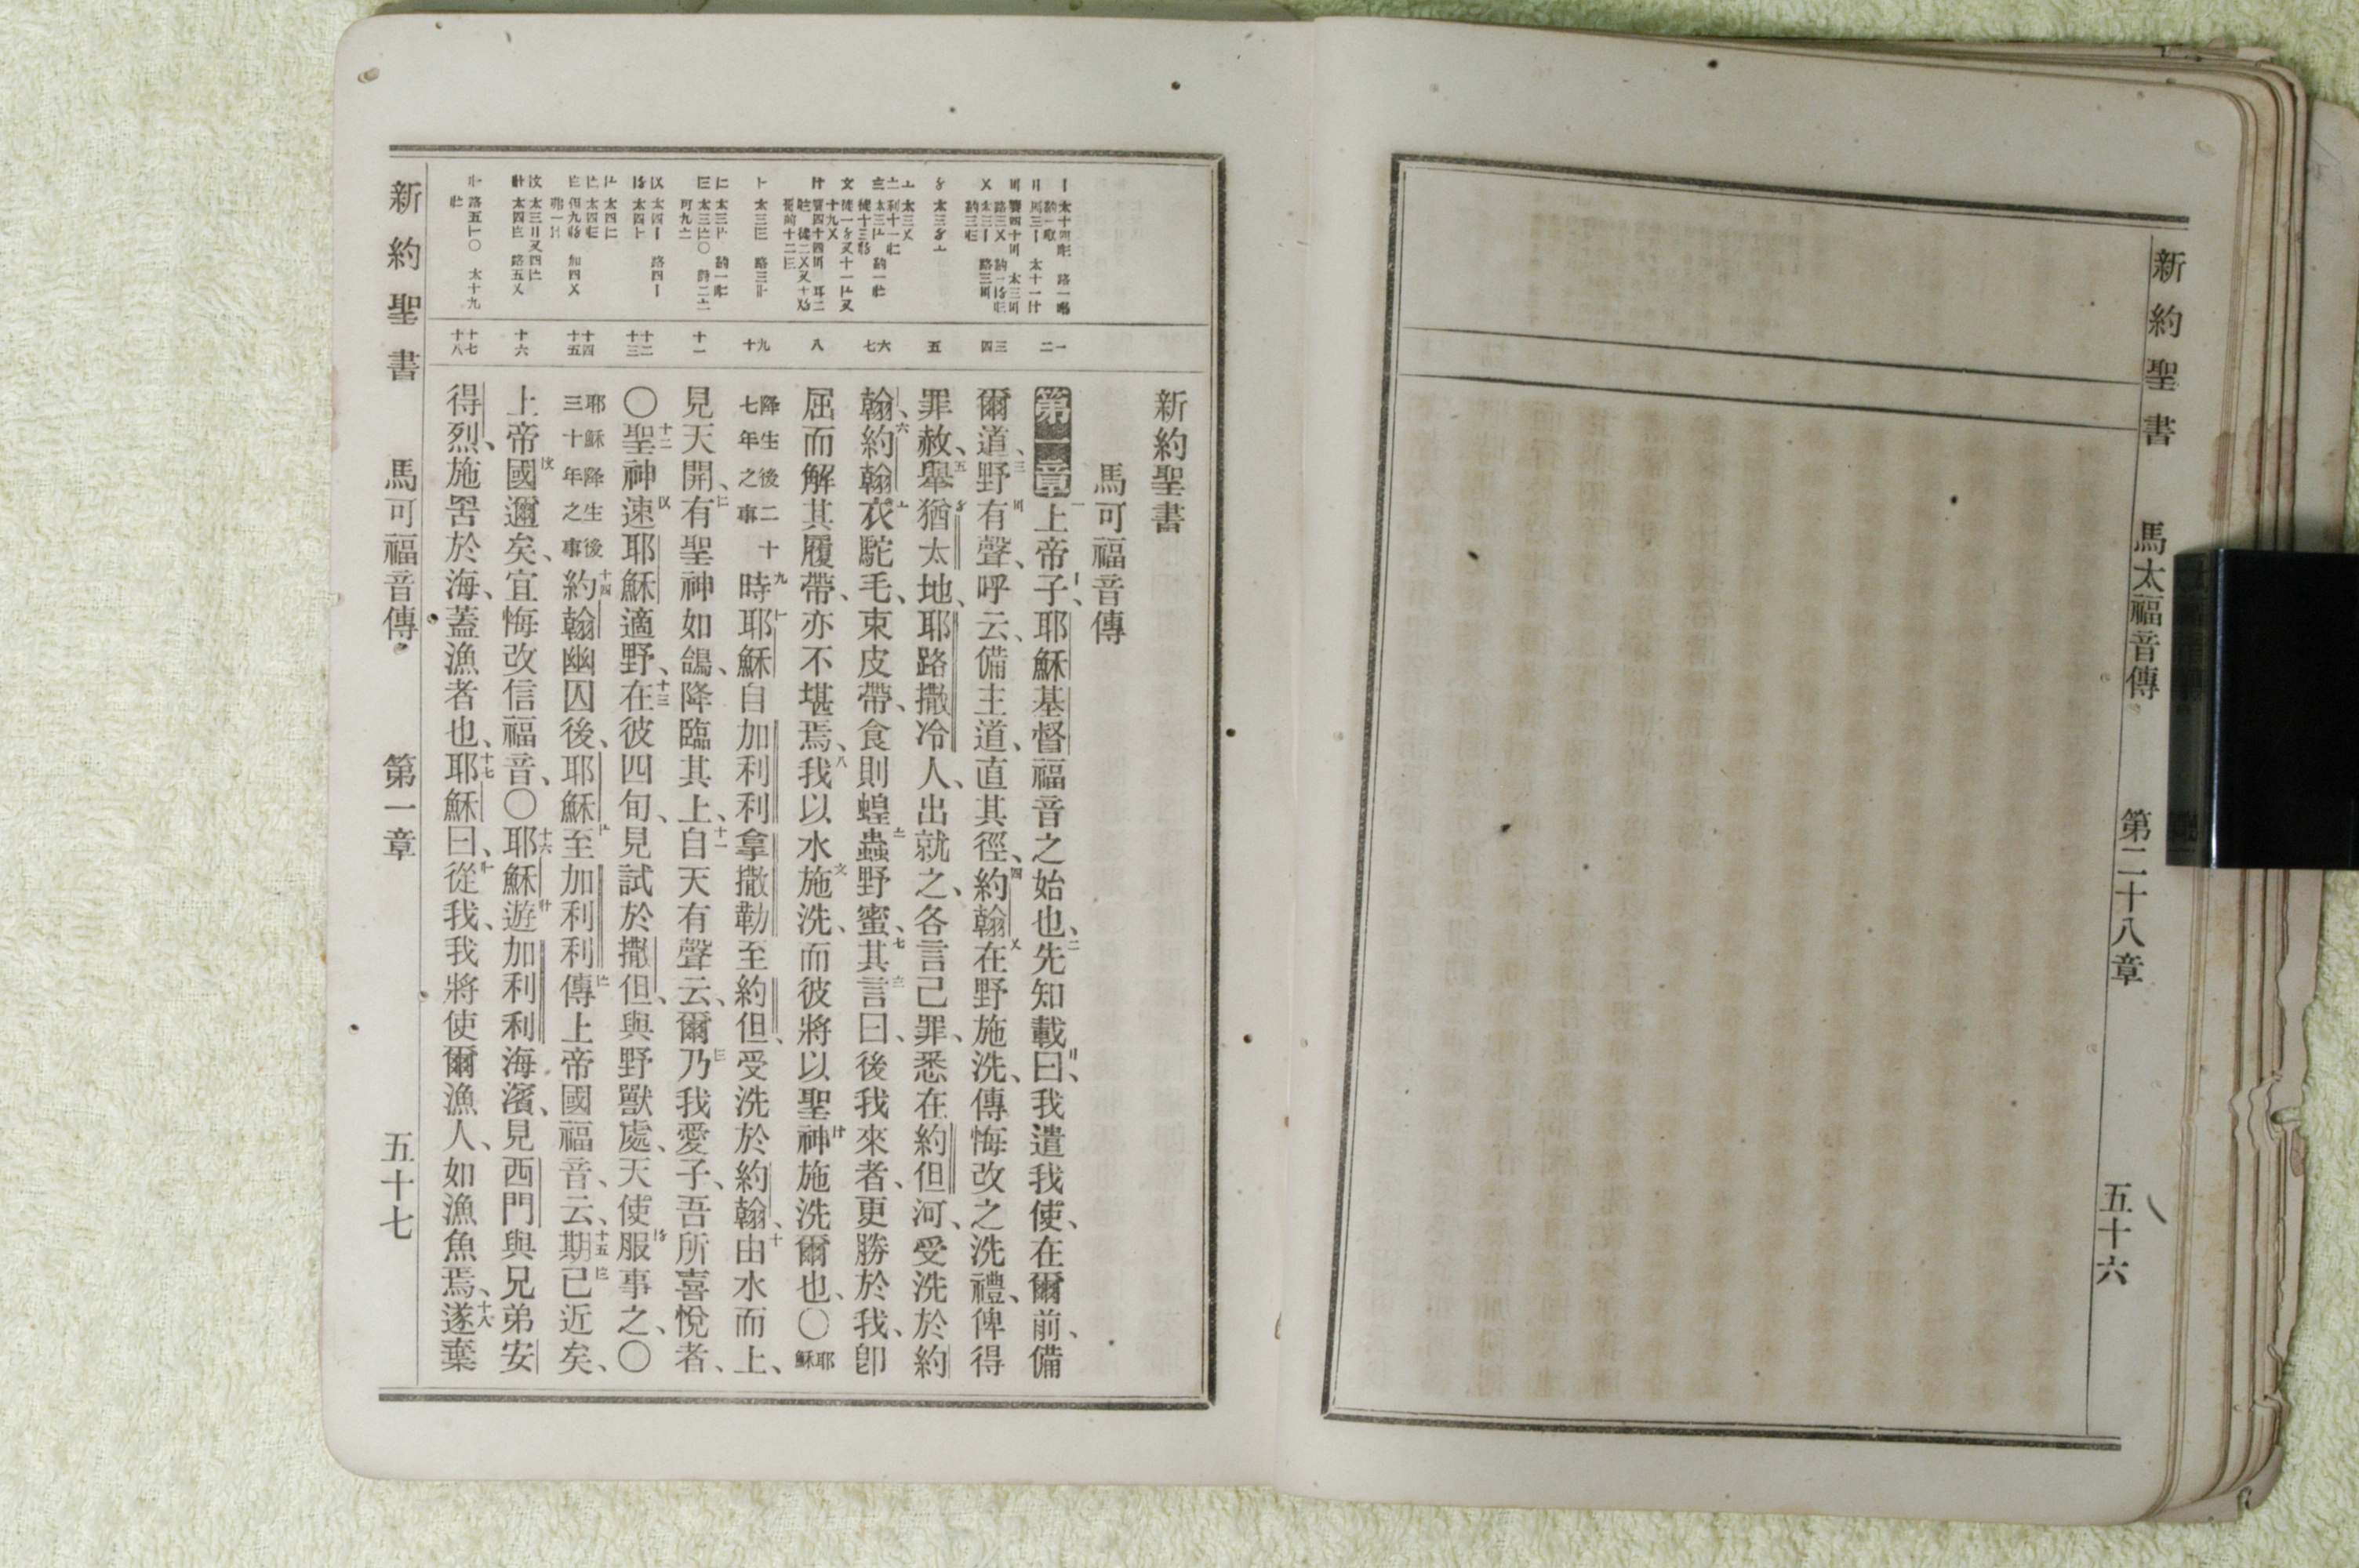 新約聖書
馬太福音傳
第二十八章
五十六
新約聖書
馬可福音傳
第一章上帝子、耶穌基督福音之始也、先知載曰、我遣我使、在爾前、備
爾道、野有聲、呼云、備主道、直其徑、約翰在野施洗、傳悔改之洗禮、俾得
罪赦、舉猶太地、耶路撒冷人、出就之、各言己罪、悉在約但河、受洗於約
翰、約翰衣駝毛、束皮帶、食則蝗蟲野蜜、其言曰、後我來者、更勝於我、卽
屈而解其履帶、亦不堪焉、我以水施洗、而彼將以聖神施洗爾也、〇耶穌
降生後二十七年之事時耶穌自加利利拿撒勒至約但、受洗於約翰、由水而上、
見天開、有聖神如鴿、降臨其上、自天有聲云、爾乃我愛子、吾所喜悅者、
〇聖神速耶穌適野、在彼四旬、見試於撒但、與野獸處、天使服事之、〇
耶穌降生後三十年之事約翰幽囚後、耶穌至加利利傳上帝國福音、云、期已近矣、
上帝國邇矣、宜悔改信福音、〇耶穌遊加利利海濱、見西門與兄弟安
得烈、施罟於海、蓋漁者也、耶穌曰、從我、我將使爾漁人、如漁魚焉、遂棄
一
二
三
四
五
六
七
八
九
十
十一
十二
十三
十四
十五
十六
十七
十八
新約聖書
馬可福音傳
第一章
五十七